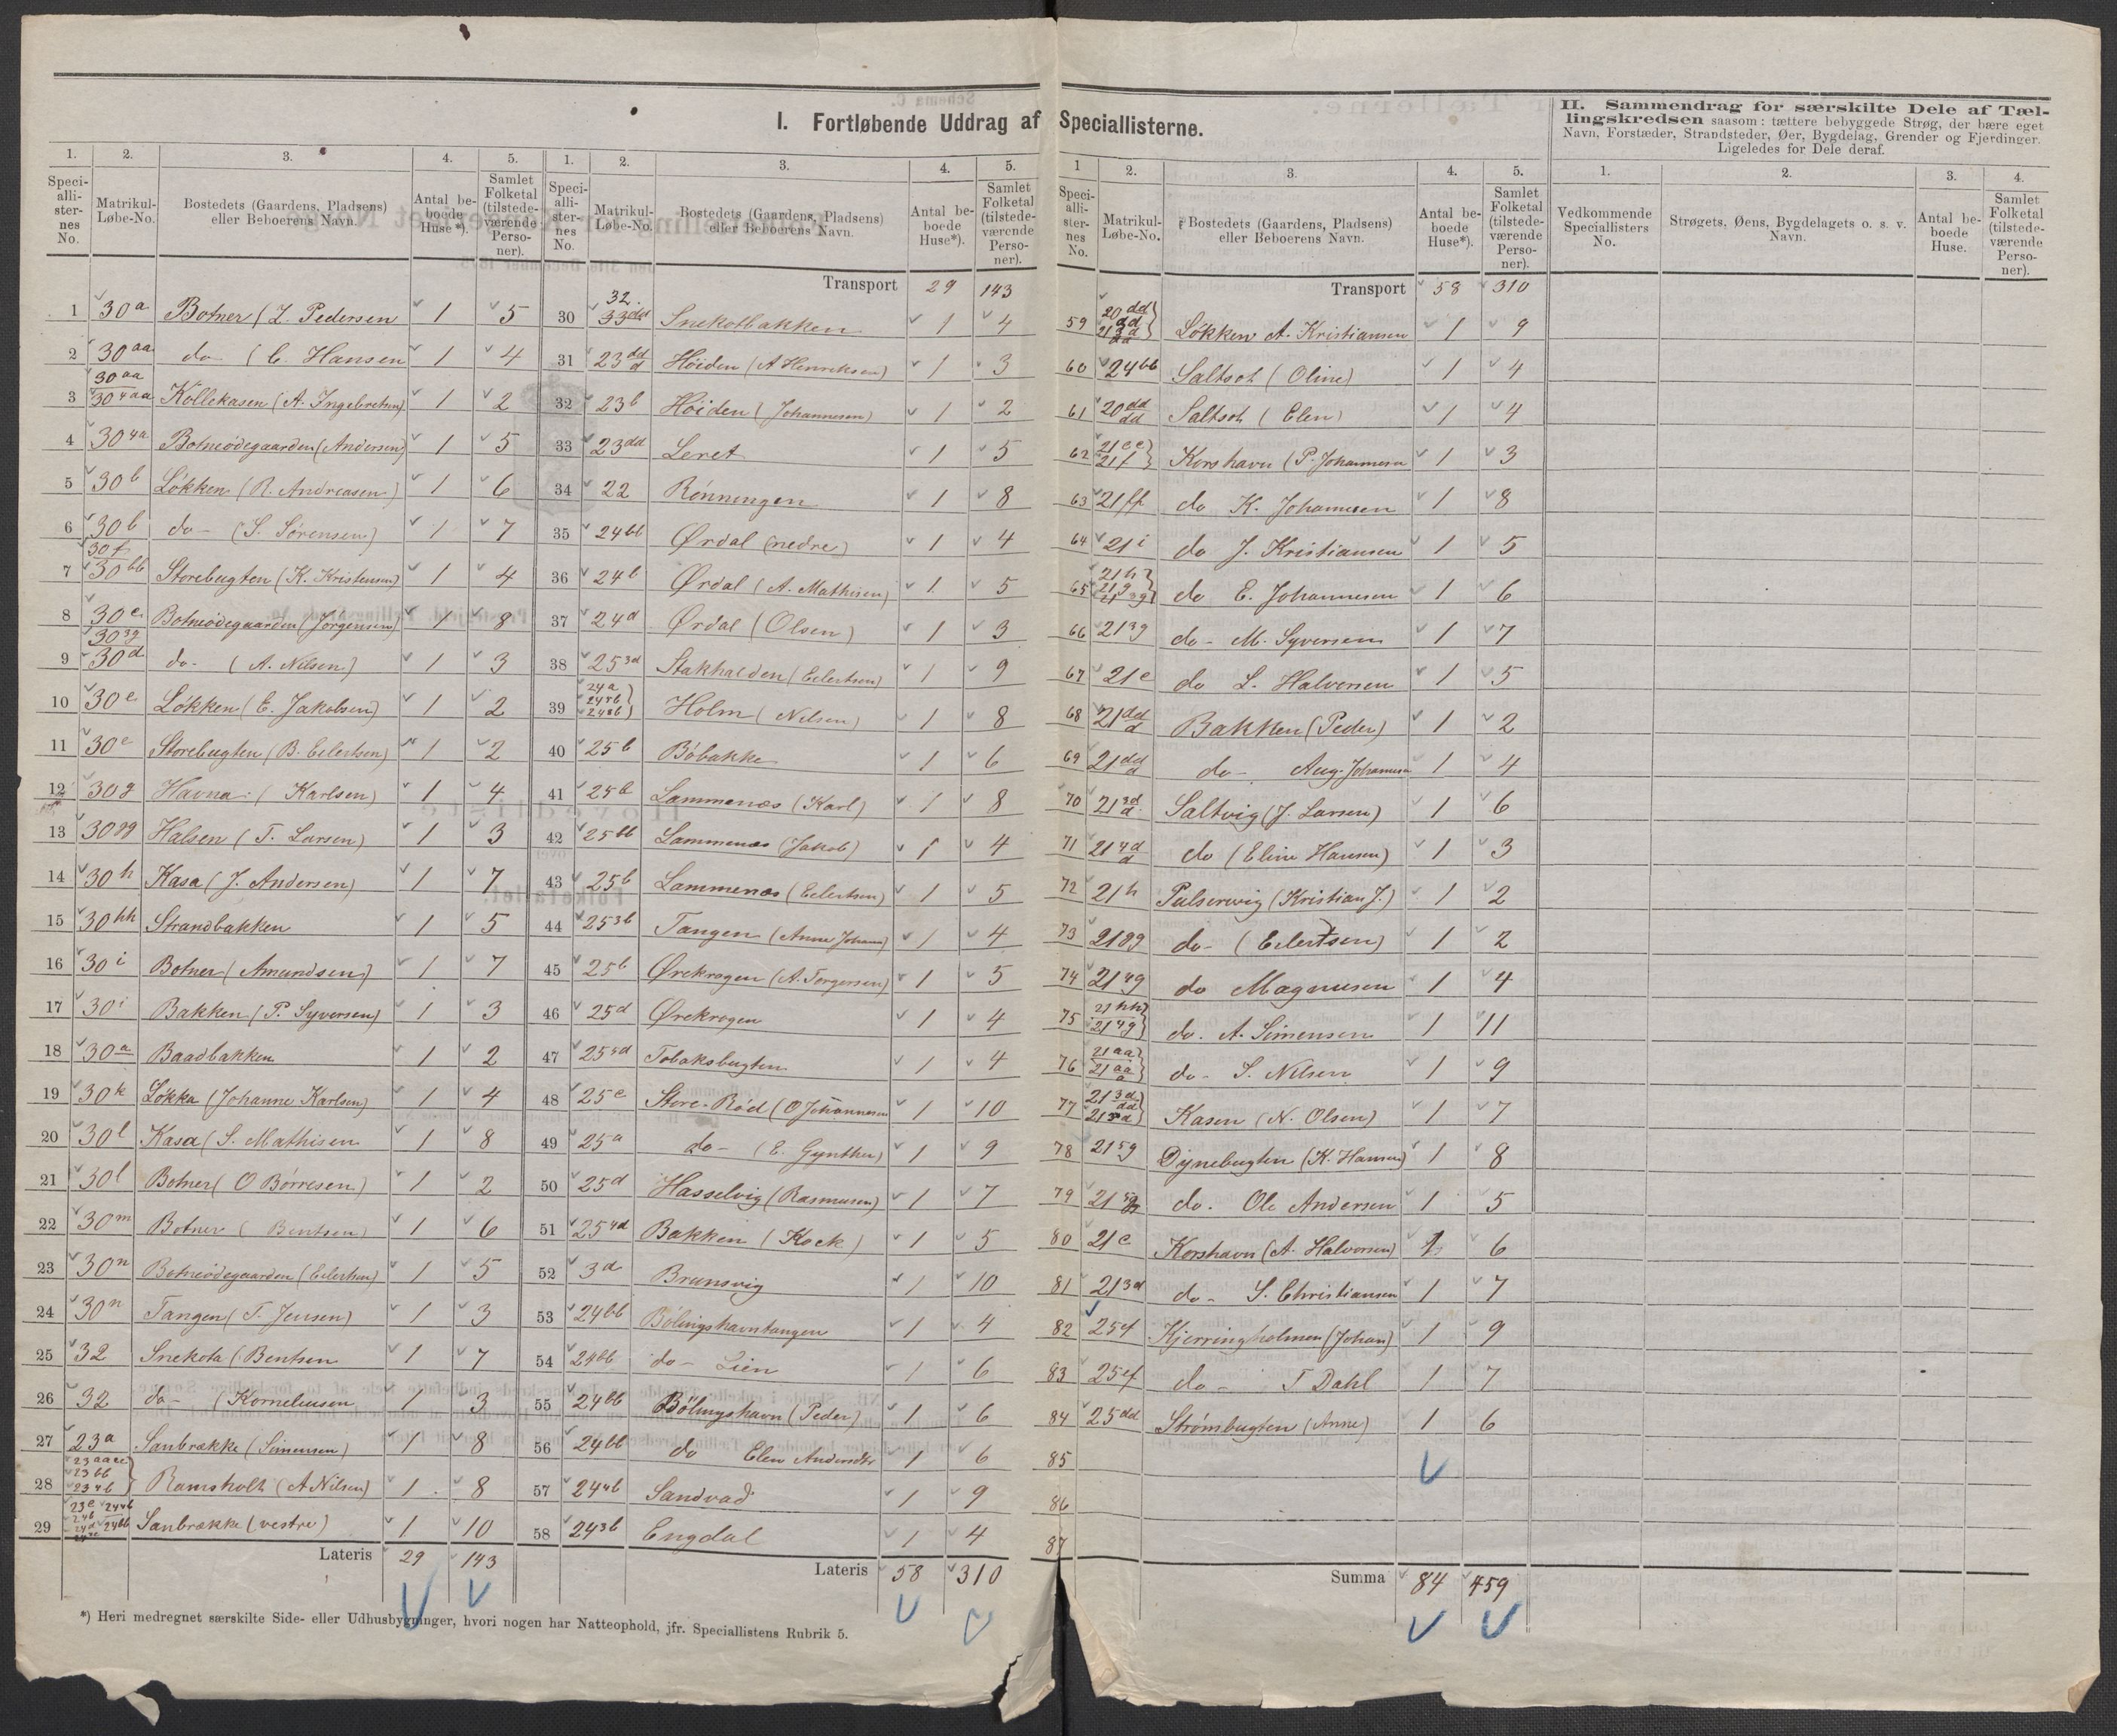 I. Fortløbende Uddrag af Speciallisterne.
II. Sammendrag for særskilte Dele af Tæl-
lingskredsen saasom: tættere bebyggede Strøg, der bære eget
Navn, Forstæder, Strandsteder, Øer, Bygdelag, Grender og Fjerdinger.
Ligeledes for Dele deraf.
1. 2. 3. 4. 5.
Speci-alli-ster-nes No. Matrikul-Løbe-No. Bostedets (Gaardens, Pladsens) eller Beboerens Navn. Antal be-boede Huse *). Samlet Folketal (tilstede-værende Perso-ner).
1 30a Botner (Z. Pedersen 1 5
2 30aa do (C. Hansen 1 4
3 30aa 304aa Kollekasen (A. Ingebretsen) 1 2
4 304a Botneödegaarden (Andersen) 1 5
5 30b Løkken (R. Andreasen) 1 6
6 30b do - (S. Sörensen) 1 7
7 30f 30bb Storebugten (K. Kristensen) 1 4
8 30c Botneödegaarden (Jörgensen) 1 8
9 303g 30d do - (A. Nilsen) 1 3
10 30e Løkken (E. Jakobsen) 1 2
11 30e Storebugten (B. Eilertsen) 1 2
12 30g Havna (Karlsen) 1 4
13 30gg Halsen (T. Larsen) 1 3
14 30h Kasa (J. Andersen) 1 7
15 30hh Strandbakken 1 5
16 30i Botner (Amundsen) 1 7
17 30i Bakken (P. Syversen) 1 3
18 30a Baadbakken 1 2
19 30k Løkka (Johanne Karlsen) 1 4
20 30l Kasa (S. Mathisen 1 8
21 30l Botner (O Börresen) 1 2
22 30m Botner (Bentsen) 1 6
23 30n Botneödegaarden (Eilertsen) 1 5
24 30n Tangen (T. Jensen) 1 3
25 32 Snekota (Bentsen 1 7
26 32 do - (Korneliusen 1 3
27 23a Sanbrække (Simensen) 1 8
28 23bb 234b Ramsholt (A Nilsen) 1 8
29 23e 24b 24bb Sanbrække (vestre) 1 10
Lateris 29 143
1. 2. 3. 4. 5.
Speci-alli-ster-nes No. Matrikul-Løbe-No. Bostedets (Gaardens, Pladsens) eller Beboerens Navn. Antal be-boede Huse*). Samlet Folketal (tilstede-værende Perso-ner).
Transport 29 143
30 32. Snekotbakken 1 4
31 23dd d Höiden (A Henriksen) 1 3
32 23b Höiden (Johannesen) 1 2
33 23dd Leret 1 5
34 22 Rönningen 1 8
35 24bb Ørdal (nedre) 1 4
36 24b Ørdal (A. Mathisen) 1 5
37 24d Ørdal (Olsen) 1 3
38 253d Stakhalden (Eilertsen) 1 9
39 24a 244b Holm (Nilsen) 1 8
40 25b Böbakke 1 6
41 25b Lammenæs (Karl) 1 8
42 25bb Lammenæs (Jakob) 1 4
43 25b Lammenæs (Eilertsen) 1 5
44 253b Tangen (Anne Johann) 1 4
45 25b Ørekrogen (A. Torgersen) 1 5
46 25d Ørekrogen 1 4
47 254d Tobaksbugten 1 4
48 25e Store-Röd (O Johannesen 1 10
49 25a do - (E. Gynther) 1 9
50 25d Hasselvig (Rasmusen) 1 7
51 254d Bakken (Kock) 1 5
52 3d Brunsvig 1 10
53 24bb Bölingshavntangen 1 4
54 24bb do - Lien 1 6
55 24bb Bölingshavn (Peder) 1 6
56 24bb do Elen Andersdtr 1 6
57 244b Sandvad 1 9
58 243b Engdal 1 4
Lateris 58 310
*) Heri medregnet særskilte Side- eller Udhusbygninger, hvori nogen har Natteophold, jfr. Speciallistens Rubrik 5.
1 2. 3. 4. 5.
Speci-alli-ster-nes No. Matrikul-Løbe-No. Bostedets (Gaardens, Pladsens) eller Beboerens Navn. Antal be-boede Huse*). Samlet Folketal (tilstede-værende Perso-ner).
Transport 58 310
59 20dd dd Løkken A. Kristiansen 1 9
60 24bb Saltsot (Oline) 1 4
61 20dd dd Saltsot (Elen) 1 4
62 21ee 21f Korshavn (P. Johannesen 1 3
63 21ff do K. Johannesen 1 8
64 21i do J. Kristiansen 1 5
65 21h 21g 213g do E. Johannesen 1 6
66 213g do - M. Syversen 1 7
67 21e do L. Halversen 1 5
68 21dd d Bakken (Peder) 1 2
69 21dd d do - Aug. Johannesen 1 4
70 213d d Saltvig (J. Larsen) 1 6
71 214d d do (Eline Hansen) 1 3
72 21h Pulservig (Kristian J.) 1 2
73 21gg do - (Eilertsen) 1 2
74 214g do Magnusen 1 4
75 21hh 214g do. A. Simensen 1 11
76 21aa 21aa a do - S. Nilsen 1 9
77 213d dd Kasen (N. Olsen) 1 7
78 215g Dynebugten (K. Hansen) 1 8
79 21 do. Ole Andersen 1 5
80 21e Korshavn (A. Halvorsen) 1 6
81 213d do - S. Christiansen 1 7
82 25ef Kjerringholmen (Johan) 1 9
83 25ef do - T Dahl 1 7
84 25dd Strömbugten (Anne) 1 6
85
86
87
Summa 84 459
1. 2. 3. 4.
Vedkommende Speciallisters No. Strøgets, Øens, Bygdelagets o. s. v. Navn. Antal be-boede Huse. Samlet Folketal (tilstede-værende Perso-ner).